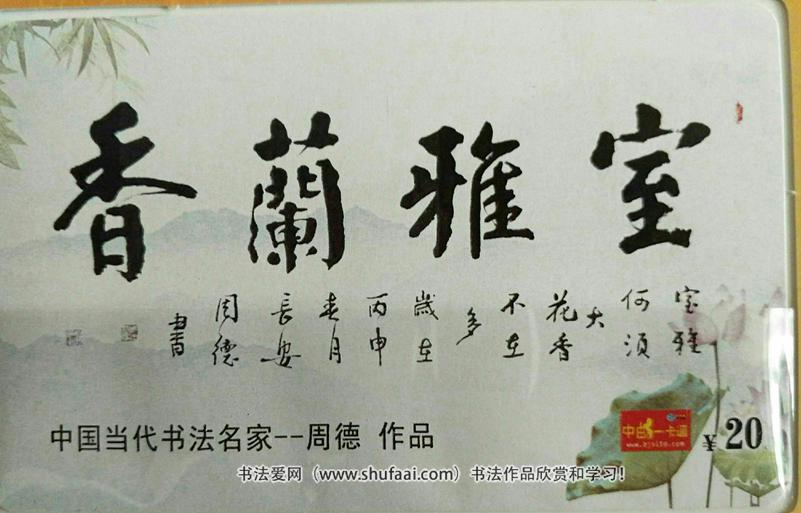 室雅蘭香
室雅
何須
大
花香
不在
多
歲在
丙申
春月
長安
周德
書
中国当代书法名家--周德 作品
一卡通
¥20
书法爱网（www.shufaai.com）书法作品欣赏和学习！